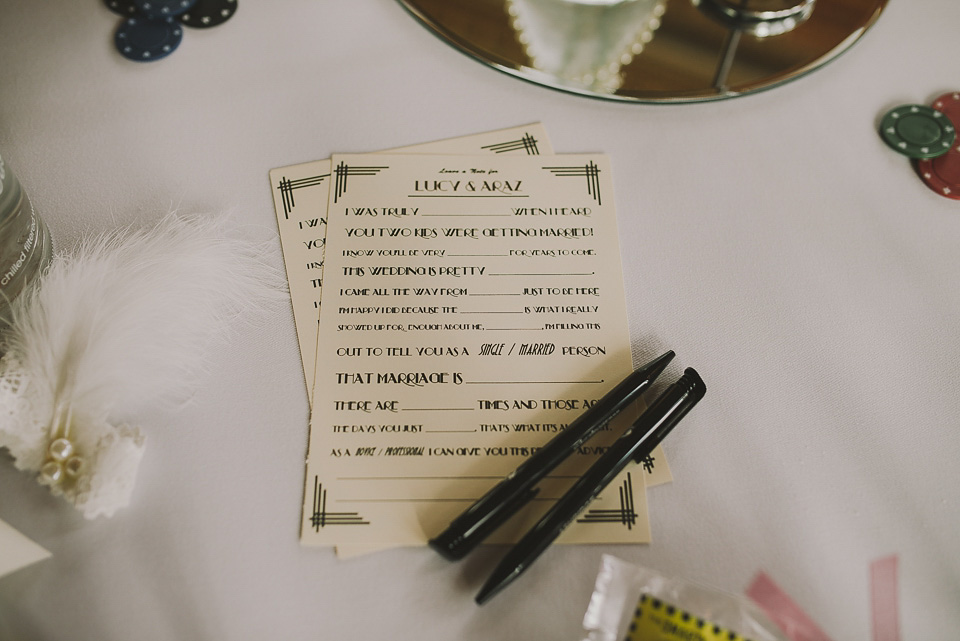 Leave a Note for
LUCY & ARAZ
I WAS TRULY ____________ WHEN I HEARD
YOU TWO KIDS WERE GETTING MARRIED!
I KNOW YOU'LL BE VERY ____________ FOR YEARS TO COME.
THIS WEDDING IS PRETTY ____________.
I CAME ALL THE WAY FROM ____________ JUST TO BE HERE
I'M HAPPY I DID BECAUSE THE ____________ IS WHAT I REALLY
SHOWED UP FOR. ENOUGH ABOUT ME, ____________, I'M FILLING THIS
OUT TO TELL YOU AS A SINGLE / MARRIED PERSON
THAT MARRIAGE IS ____________.
THERE ARE ____________ TIMES AND THOSE ARE
THE DAYS YOU JUST ____________, THAT'S WHAT IT'S
AS A NOVICE / PROFESSIONAL I CAN GIVE YOU THIS
I WA
YO
chilled filtered